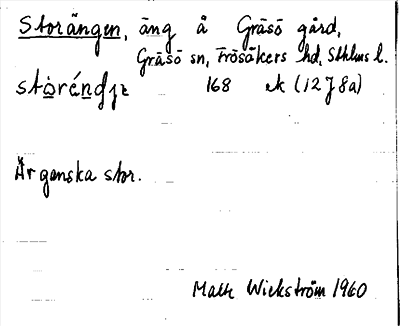 Storängen, äng å Gräsö gård,
Gräsö sn, Frösåkers hd, Sthlms l.
168 ek (12J 8a)
Är ganska stor.
Wickström 1960